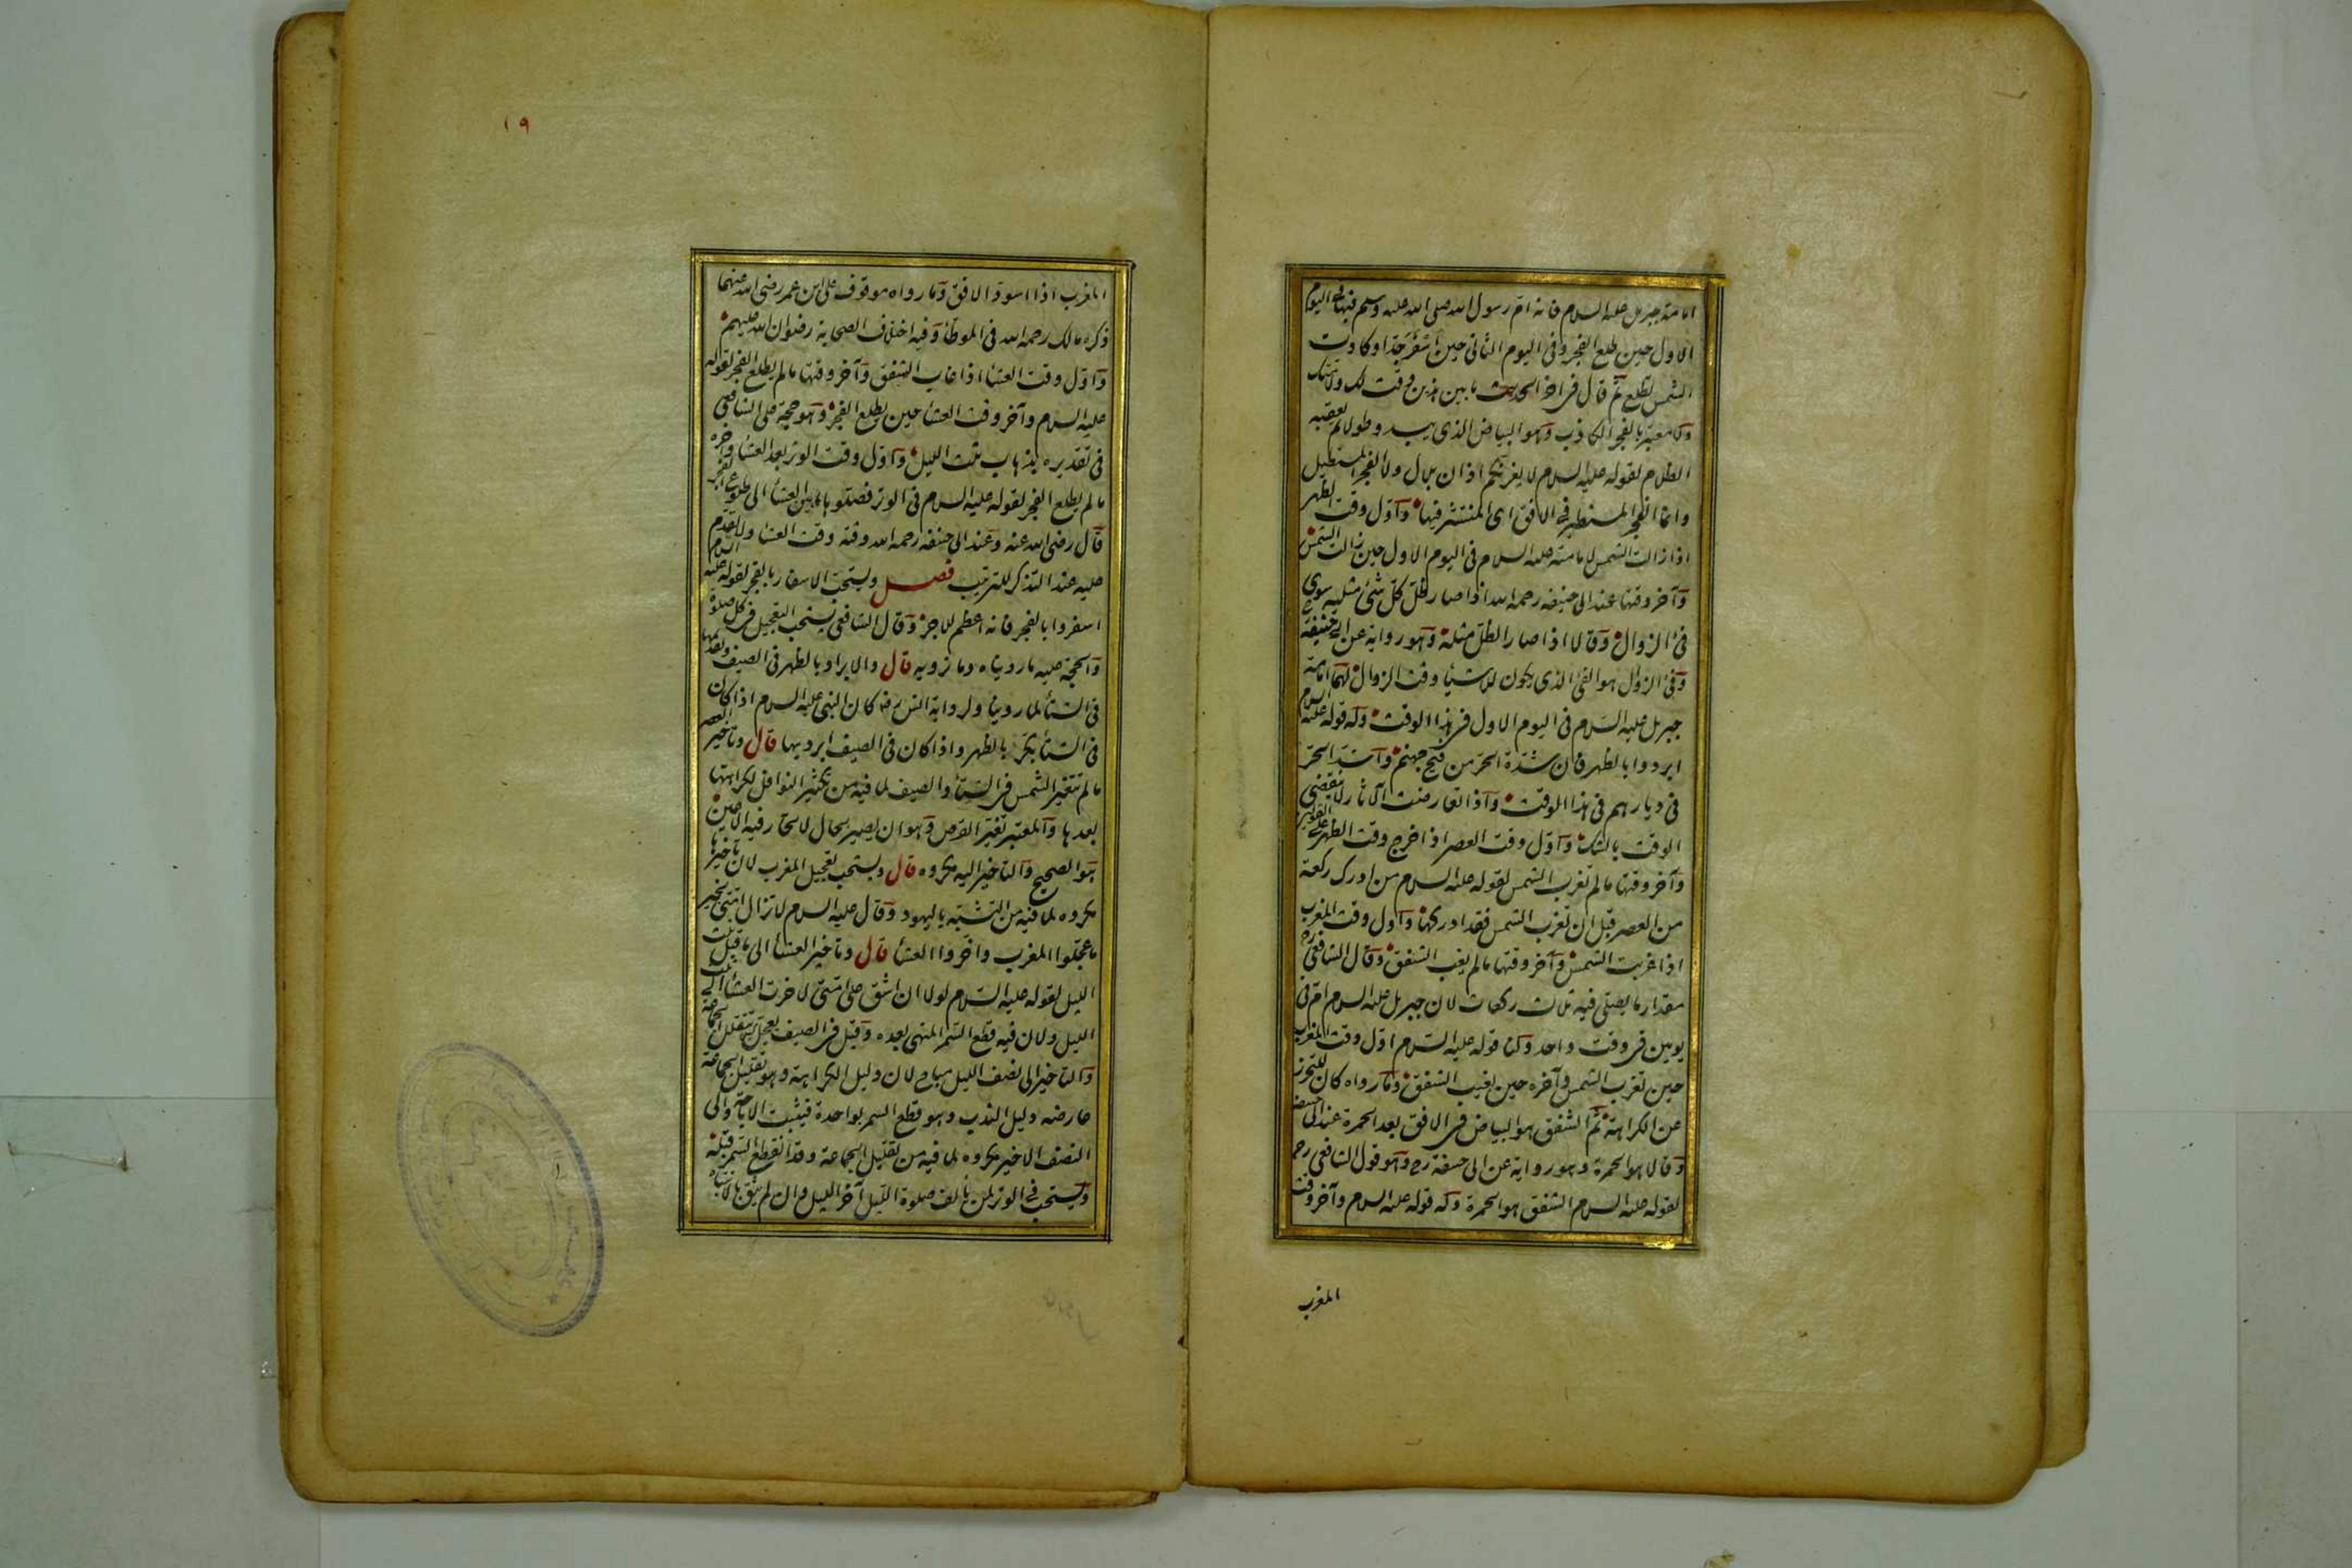 لامامة جبريل عليه السلام فانه ام رسول الله صلى الله عليه وسلم فيها فى اليوم
الاول حين طلع الفجر وفى اليوم الثانى حين اسفر جدا وكادت
الشمس تطلع ثم قال فى اخر الحديث ما بين هذين وقت لك ولامتك
ولا معتبر بالفجر الكاذب وهو البياض الذى يبدو طولا ثم يعقبه
الظلام لقوله عليه السلام لا يغرنكم اذان بلال ولا الفجر المستطيل
وانما الفجر المستطير فى الافق اى المنتشر فيها واول وقت الظهر
اذا زالت الشمس لامامته عليه السلام فى اليوم الاول حين زالت الشمس
وآخر وقتها عند ابى حنيفة رحمه الله اذا صار ظل كل شئ مثليه سوى
فئ الزوال وقالا اذا صار الظل مثله وهو رواية عن ابى حنيفة رح
وفئ الزوال هو الفئ الذى يكون للاشياء وقت الزوال لهما امامة
جبريل عليه السلام فى اليوم الاول فى هذا الوقت وله قوله عليه السلام
ابردوا بالظهر فان شدة الحر من فيح جهنم واشد الحر
فى ديارهم فى هذا الوقت واذا تعارضت الآثار لا ينقضى
الوقت بالشك واول وقت العصر اذا خرج وقت الظهر على القولين
وآخر وقتها ما لم تغرب الشمس لقوله عليه السلام من ادرك ركعة
من العصر قبل ان تغرب الشمس فقد ادركها واول وقت المغرب
اذا غربت الشمس وآخر وقتها ما لم يغب الشفق وقال الشافعى ره
مقدار ما يصلى فيه ثلاث ركعات لان جبريل عليه السلام ام فى
يومين فى وقت واحد ولنا قوله عليه السلام اول وقت المغرب
حين تغرب الشمس وآخره حين يغيب الشفق وما رواه كان للتحرز
عن الكراهة ثم الشفق هو البياض فى الافق بعد الحمرة عند ابى حنيفة
وقالا هو الحمرة وهو رواية عن ابى حنيفة رح وهو قول الشافعى رح
لقوله عليه السلام الشفق هو الحمرة وله قوله عليه السلام وآخر وقت
المغرب
١٩
المغرب اذا اسود الافق وما رواه موقوف على ابن عمر رضى الله عنهما
ذكره مالك رحمه الله فى الموطأ وفيه اختلاف الصحابة رضوان الله عليهم
واول وقت العشاء اذا غاب الشفق وآخر وقتها ما لم يطلع الفجر لقوله
عليه السلام وآخر وقت العشاء حين يطلع الفجر وهو حجة على الشافعى
فى تقديره بذهاب ثلث الليل واول وقت الوتر بعد العشاء وآخره
ما لم يطلع الفجر لقوله عليه السلام فى الوتر فصلوها ما بين العشاء الى طلوع الفجر
قال رضى الله عنه وعند ابى حنيفة رحمه الله وقته وقت العشاء ولا يقدم
عليه عند التذكر للترتيب فصل ويستحب الاسفار بالفجر لقوله عليه السلام
اسفروا بالفجر فانه اعظم للاجر وقال الشافعى يستحب التعجيل فى كل صلوة
والحجة عليه ما رويناه وما نرويه قال والابراد بالظهر فى الصيف وتقديمها
فى الشتاء لما روينا ولرواية انس رض كان النبى عليه السلام اذا كان
فى الشتاء بكر بالظهر واذا كان فى الصيف ابرد بها قال وتأخير العصر
ما لم تتغير الشمس فى الشتاء والصيف لما فيه من تكثير النوافل لكراهتها
بعدها والمعتبر تغير القرص وهو ان يصير بحال لا تحار فيه الاعين
هو الصحيح والتاخير اليه مكروه قال ويستحب تعجيل المغرب لان تاخيرها
مكروه لما فيه من التشبه باليهود وقال عليه السلام لا تزال امتى بخير
ما عجلوا المغرب واخروا العشاء قال وتاخير العشاء الى ما قبل ثلث
الليل لقوله عليه السلام لولا ان اشق على امتى لاخرت العشاء الى ثلث
الليل ولان فيه قطع السمر المنهى بعده وقيل فى الصيف يعجل كيلا تتقلل الجماعة
والتاخير الى نصف الليل مباح لان دليل الكراهة وهو تقليل الجماعة
عارضه دليل الندب وهو قطع السمر بواحدة فيثبت الاباحة والى
النصف الاخير مكروه لما فيه من تقليل الجماعة وقد انقطع السمر قبله
ويستحب فى الوتر لمن يألف صلوة الليل آخر الليل وان لم يثق بالانتباه